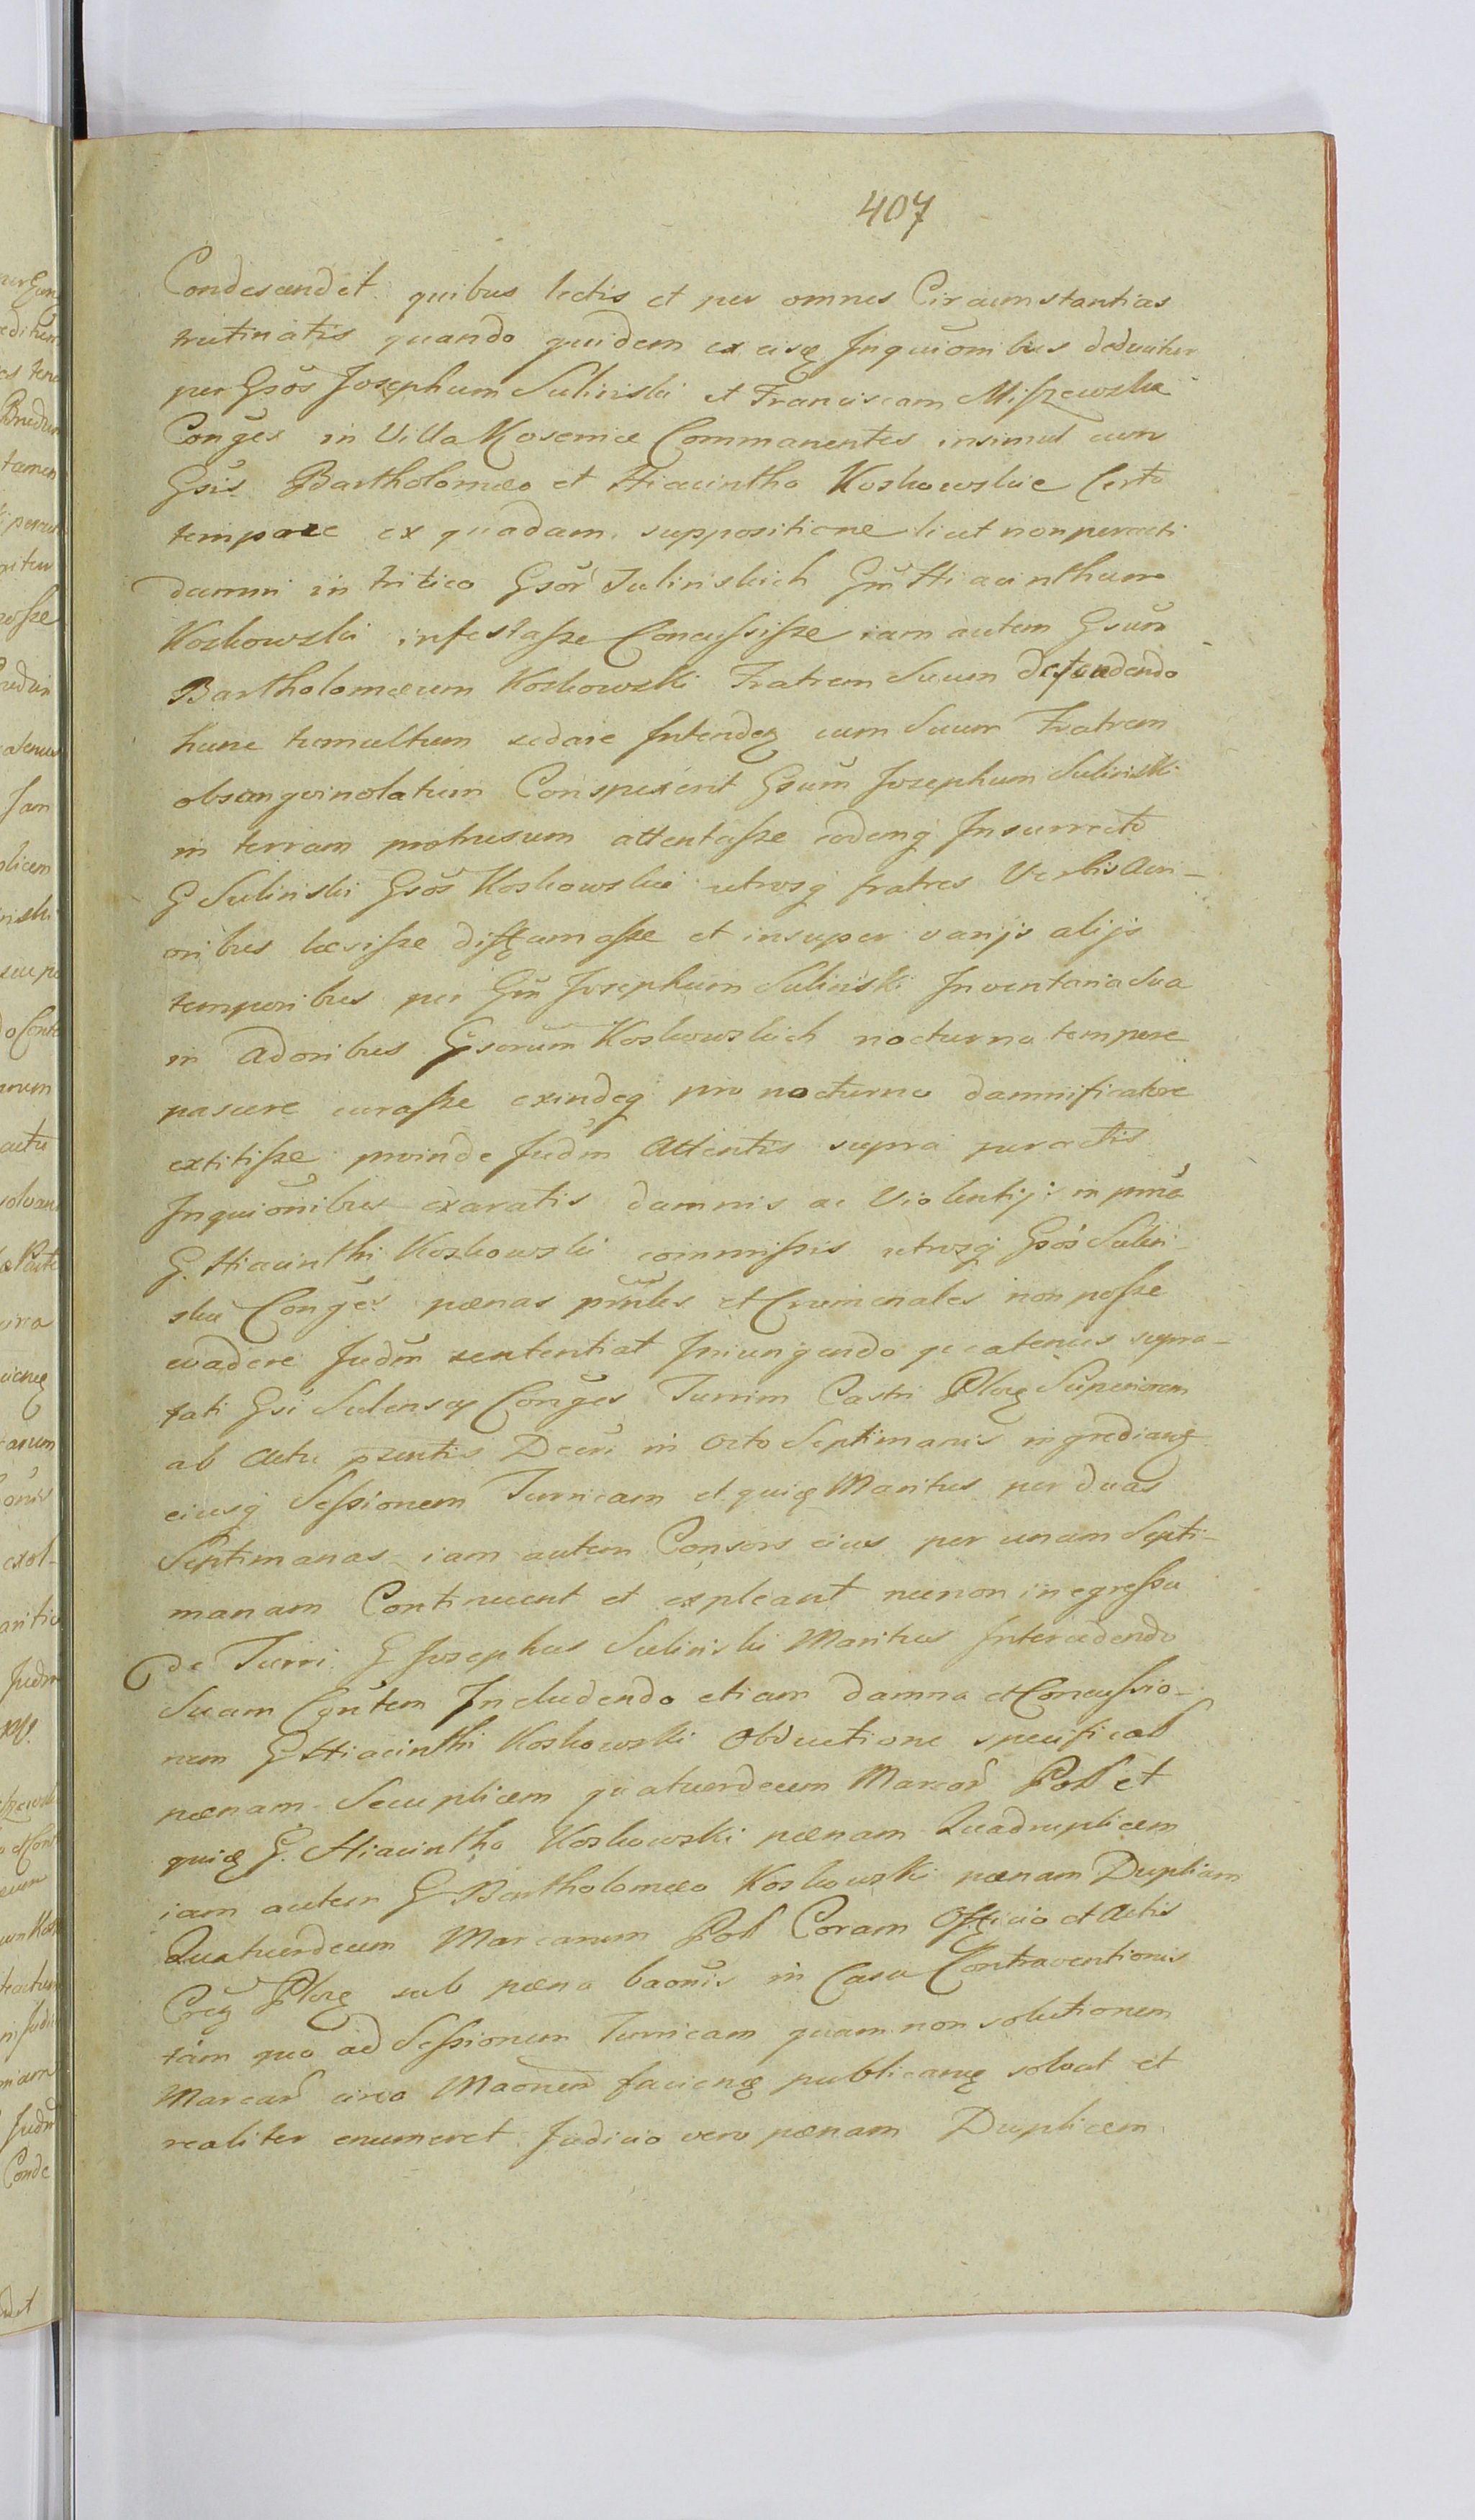 407
Condescendet quibus lectis et per omnes Circumstantias
trutinatis quando quidem ex eisq Inquiõnibus deducitur
per Gsõs Josephum Suliński et Franciscam Miszewska
Conges in Villa Kosemice Commanentes insimul cum
Gsis Bartholomæo et Hiacintho Koskowskie Certo
tempore ex quadam suppositione licet non peracti
damni in tritico Gsõr Sulinskich Gm̃ Hiacinthum
Koskowski infestasze Concussisze iam autem Gsum
Bartholomæum Koskowski Fratrem Suum defendendo
hunc tumultum sedare Intendeq cum Suum Fratrem
obsangvinolatum Conspexerit Gsum Josephum Suliński
in terram protrusum attentasze eodemq Insurrecto
G Suliński Gsõs Koskowskie utrosq fratres Verbis Acri-
oribus læsisze diffamasze et insuper varijs alijs
temporibus per Gm̃ Josephum Suliński Inventaria Sua
in Adoribus Gsorum Koskowskich nocturno tempore
pascere curasze exindeq pro nocturno damnificatore
extitisze proinde Judm Attentis supra peractis
Inquiõnibus exaratis damnis ac Violentijs in pm̃a
G. Hiacinthi Koskowski commissis utrosq Gsõs Sulin-
skie Conges pænas pnũles et Criminales non posze
evadere Judm sententiat Iniungendo quatenus supra-
fati Gsi Sulensq Conges Turrim Castri Plocq Superiorem
ab Actu pzentis Decri in Octo Septimanis ingrediantq
eiusq Sessionem Turricam et quiq Maritus per duas
Septimanas iam autem Consors eius per unam Septi-
manam Continuent et expleant necnon in egressu
de Turri G Josephus Suliński Maritus Intercedendo
Suam Cgũtem Includendo etiam damna et Concussio-
nem G Hiacinthi Koskowski Obductione specificat
pænam Secuplicem quatuordecem Marcar Pol et
quiq G. Hiacintho Koskowski pænam Quadruplicem
iam autem G Bartholomæo Koskowski pænam Duplicem
Quatuordecem Marcarum Pol Coram Officio et Actis
Crq Plocq sub pæna baõnis in Casu Contraventionis
tam quo ad Sessionem Turricam quam non solutionem
Marcar circa Maõnem facienq publicanq solvat et
realiter enumeret Judicio vero pænam Duplicem